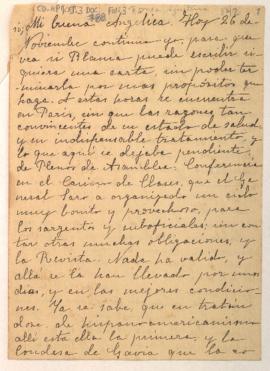 Mi buena Angelica: Hoy 26 de
Noviembre continuo yo, para que
vea si Blanca puede escribir si
quiera una carta, sin poder ter
minarla por mas propósitos que
haga. A estas horas se encuentra
en París, sin que las razones tan
convincentes de su estado de salud
y su indispensable tratamiento, y
lo que aqui se dejaba pendiente,
de Plenos de Asamblea: Conferencia
en el Casino de Clases, que el Ge
neral Saro a organizado un ciclo
muy bonito y provechoso, para
los sargentos y suboficiales; sin con
tar otras muchas obligaciones, y
la Revista. Nada ha valido, y
allá se la han llevado por unos
dias, y en las mejores condicio
nes. Ya se sabe, que en tratán
dose de hispanoamericanismo
alli esta ella la primera, y la
Condesa de Gavia que la co